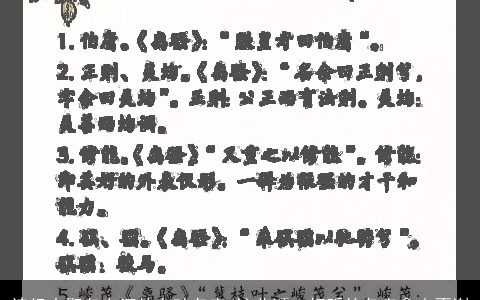 1.伯庸。《离骚》:“朕皇考曰伯庸”。
2.正则、灵均。《离骚》:“名余曰正则兮,
字余曰灵均”。正则:公正而有法则。灵均:
灵善而均调。
3.修能。《离骚》“又重之以修能”。修能:
即美好的外表仪形。一释为很强的才干和
能力。
4.骐、骥。《离骚》:“乘骐骥以驰骋兮”。
骐骥:骏马。
5.峻茂《离骚》“冀枝叶之峻茂兮”峻茂: